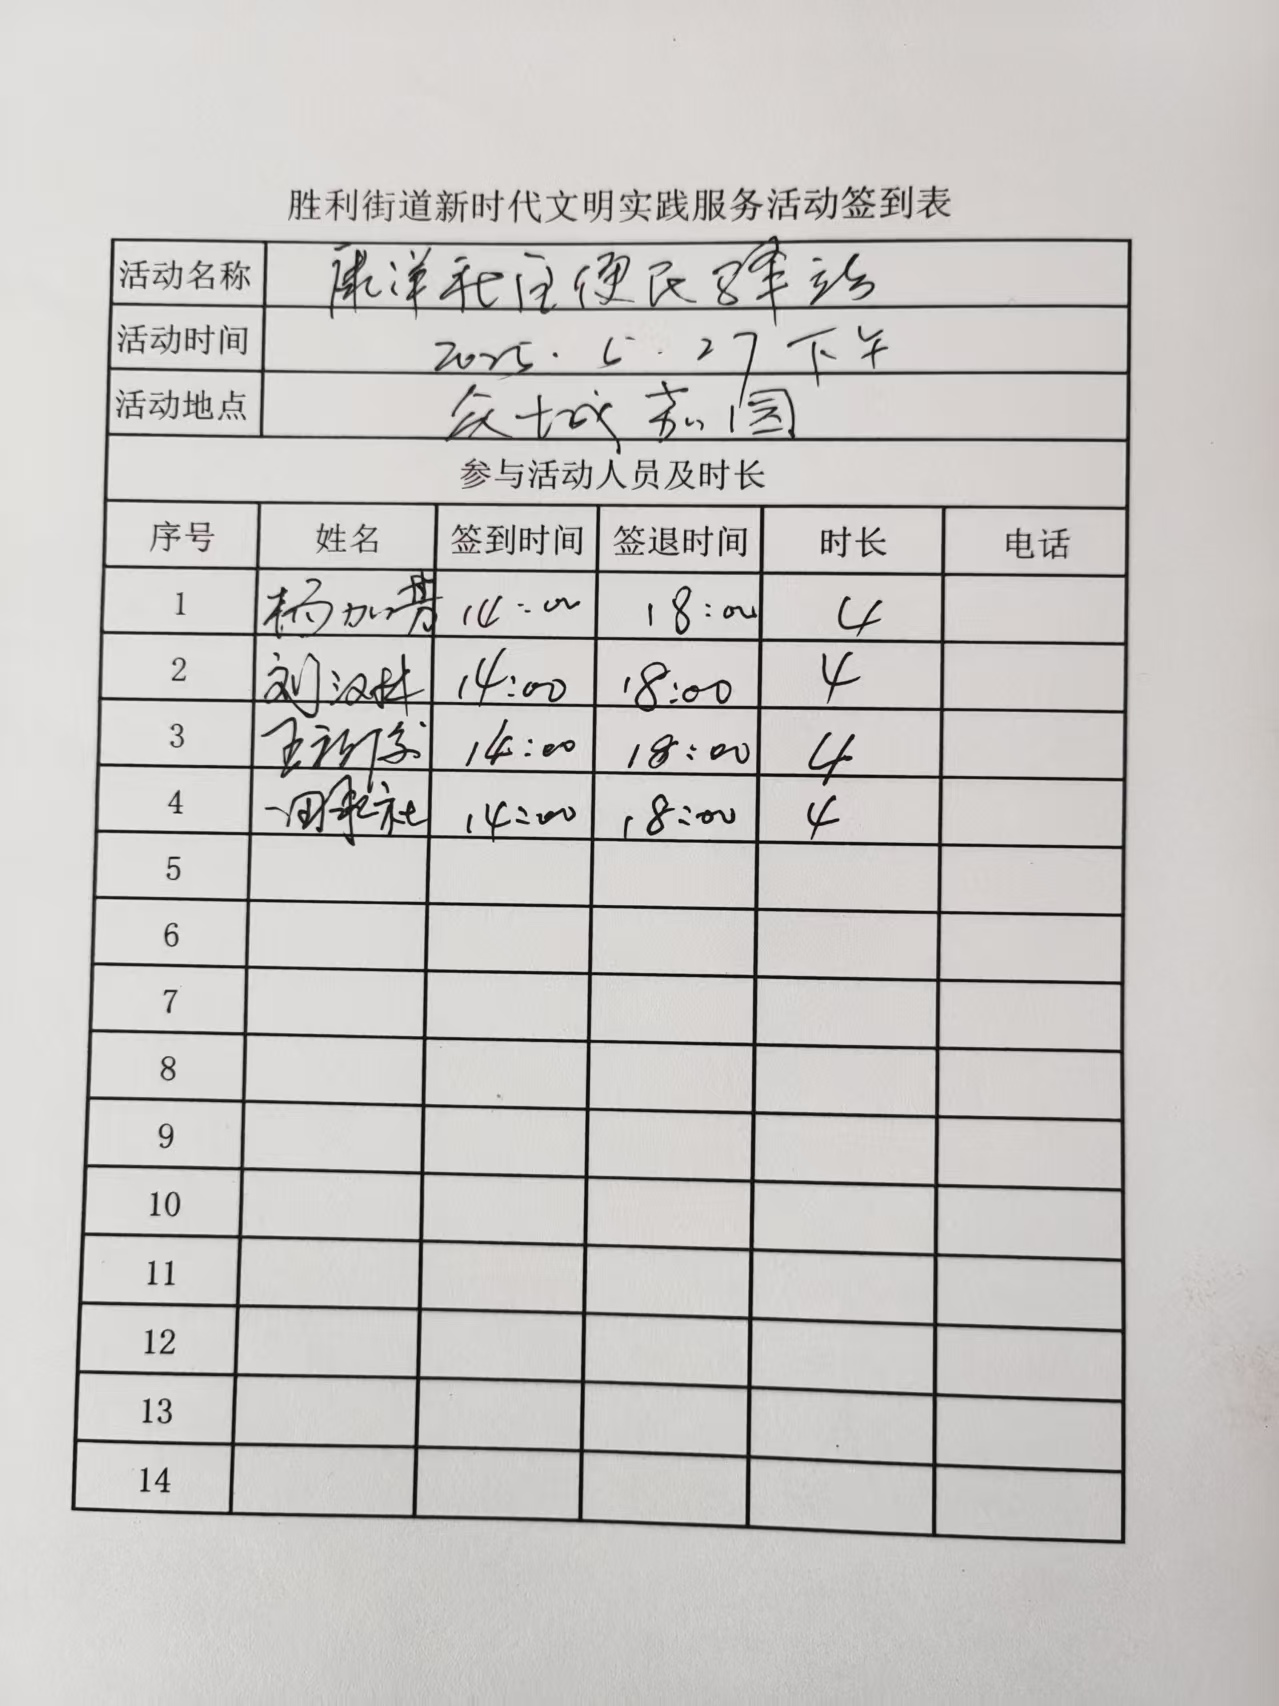 胜利街道新时代文明实践服务活动签到表
活动名称 康洋社区便民驿站
活动时间 2025.5.27下午
活动地点 众城嘉园
参与活动人员及时长
序号 姓名 签到时间 签退时间 时长 电话
1 杨加芳 14:00 18:00 4
2 刘汉林 14:00 18:00 4
3 王 14:00 18:00 4
4 田 社 14:00 18:00 4
5
6
7
8
9
10
11
12
13
14